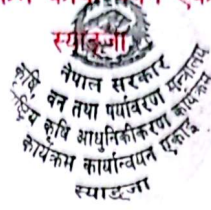 स्याङ्जा
नेपाल सरकार
कृषि, वन तथा पर्यावरण मन्त्रालय
कृषि आधुनिकीकरण कार्यक्रम
कार्यक्रम कार्यान्वयन एकाइ
स्याङ्जा